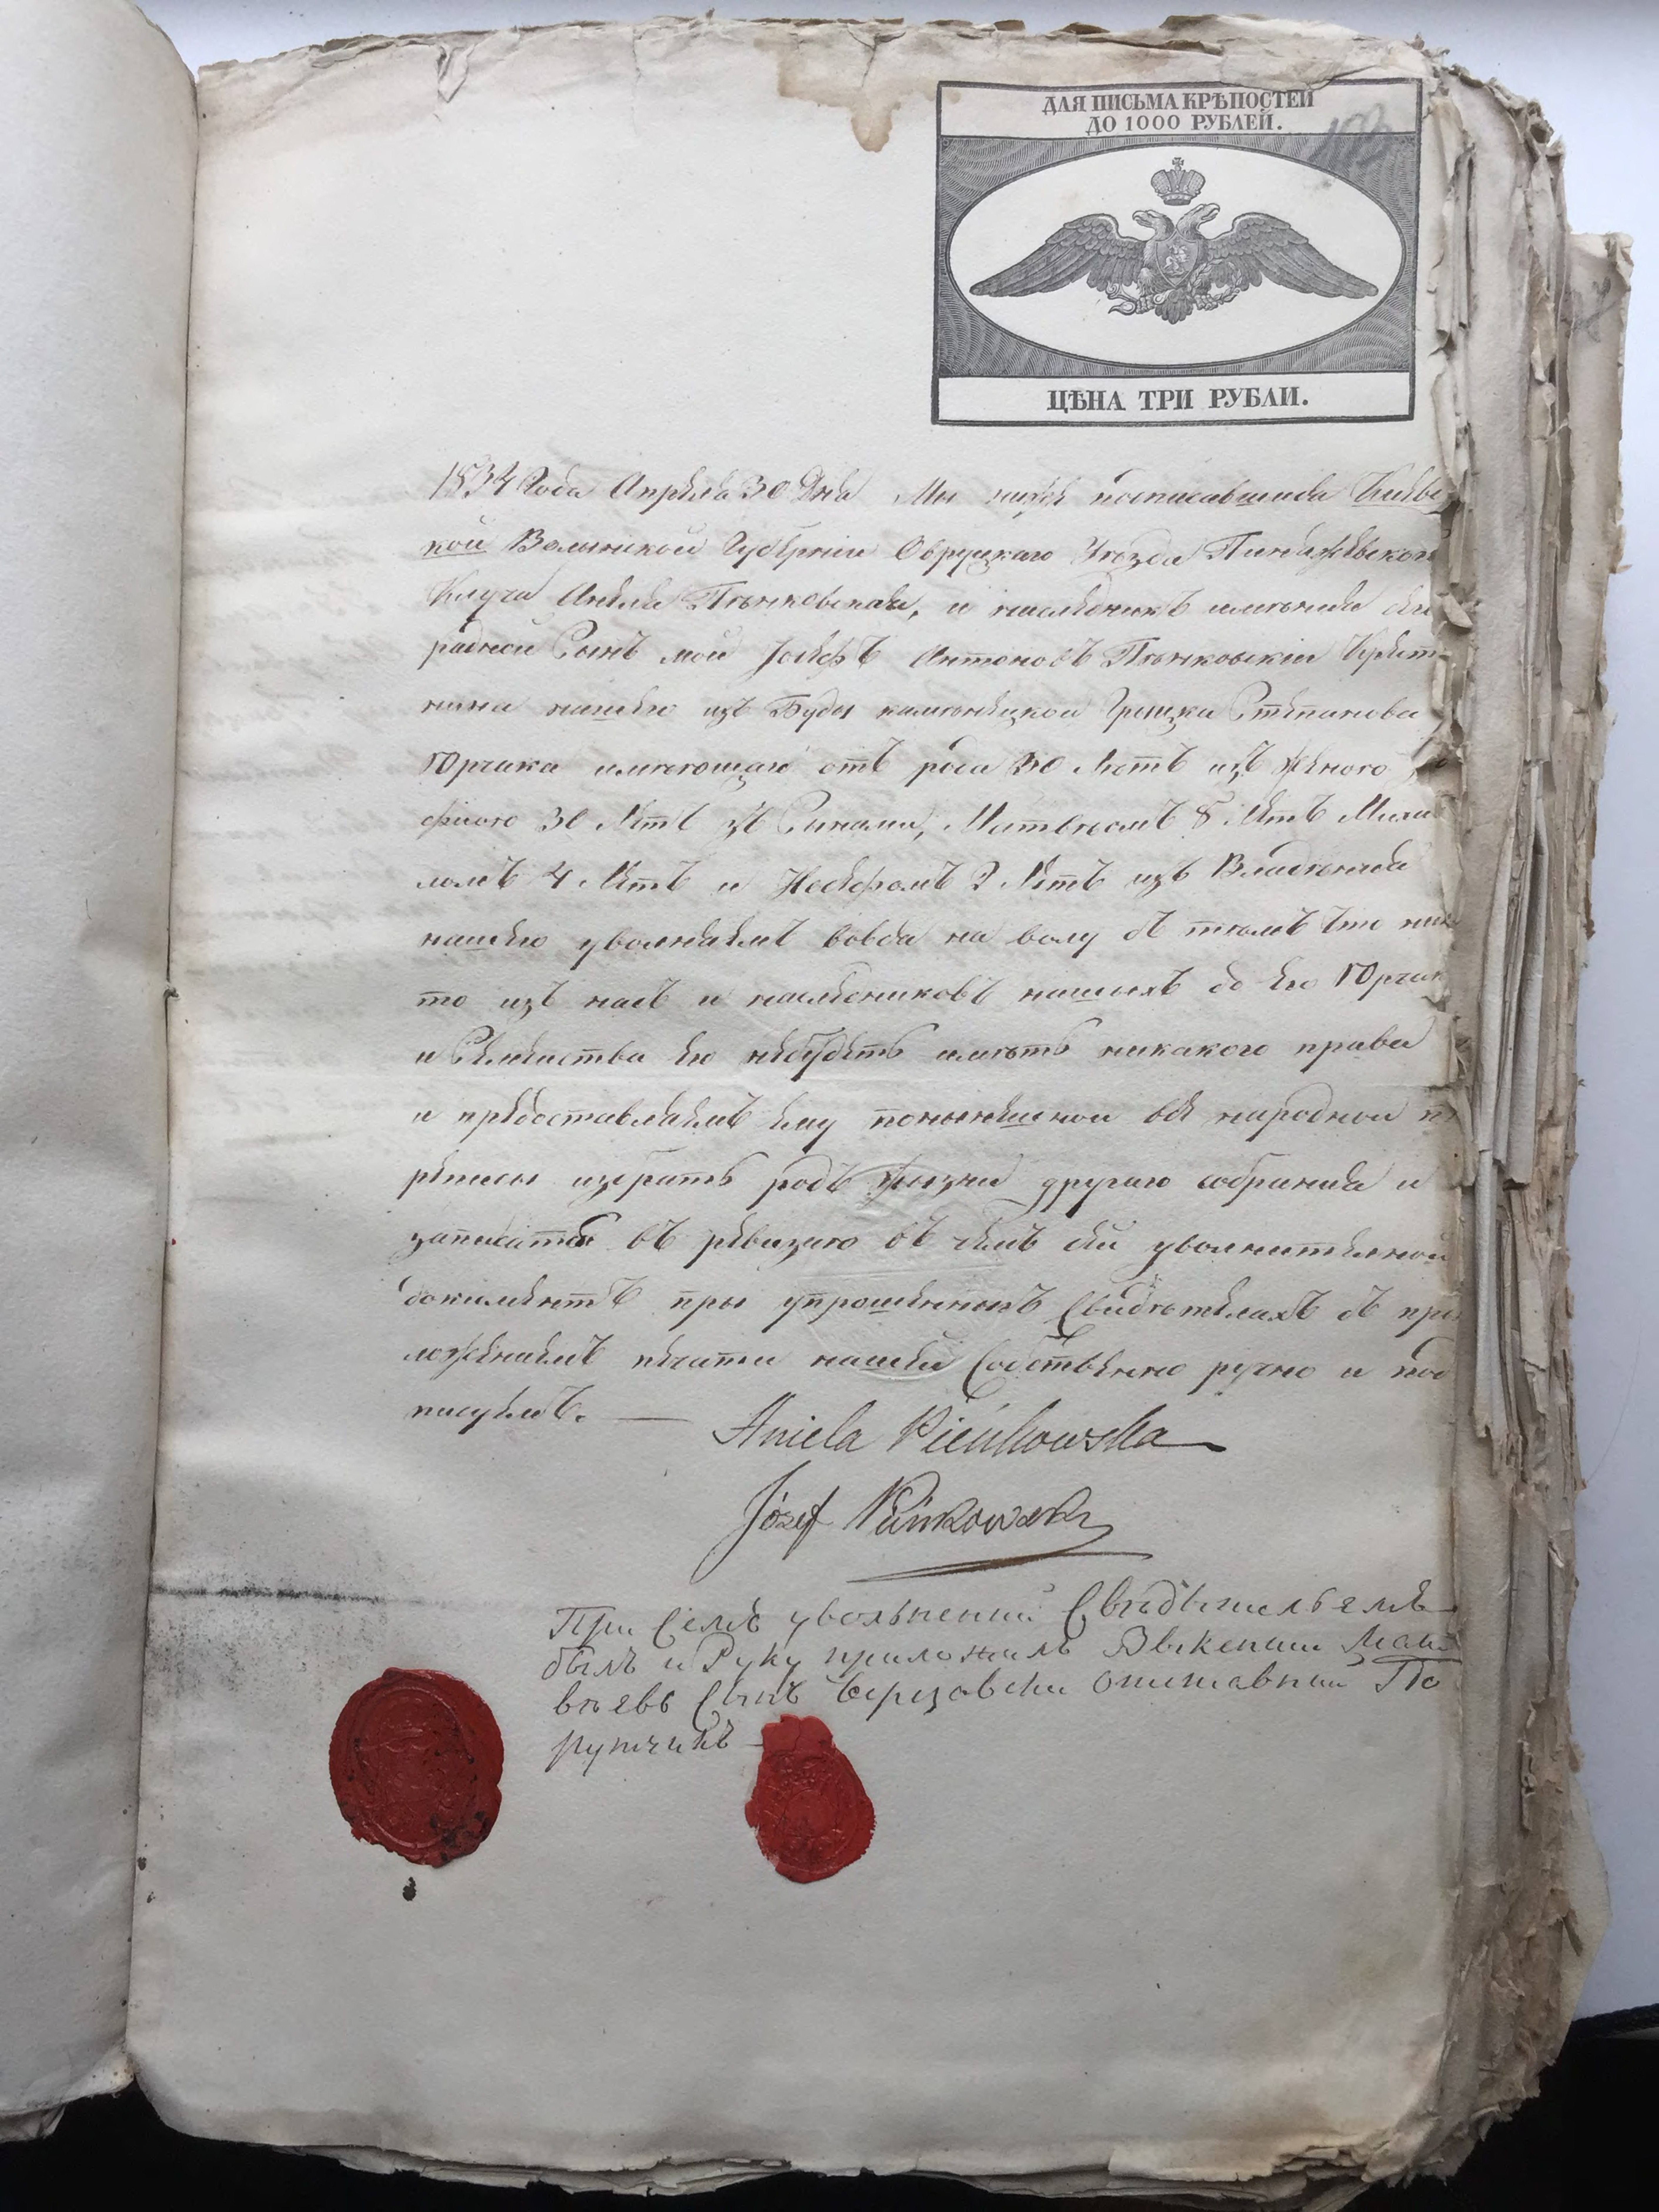 ДЛЯ ПИСЬМА КРѢПОСТЕЙ
ДО 1000 РУБЛЕЙ.
ЦѢНА ТРИ РУБЛИ.
1834 Года Апреля 30 Дня Мы ниже посписавшиеся Киевс
кой Волынской Губернии Овруцкаго Уезда
Ключа Анеля Пѣнковская, и наследникъ имѣния
родной Сынъ мой Іосефъ Антоновъ Пѣнковскии Крест
нина нашего изъ Буды каменецкой Грицка Степанова
Юрчика имеющаго отъ рода лѣтъ изъ женою
фиою 30 летъ зъ Синами, Матвѣомъ 8 летъ Миха
ломъ 4 летъ и Иосефомъ 2 летъ изъ Владѣния
нашего уволняемъ вовся на волу съ тѣмъ что ник
то изъ насъ и наследниковъ нашыхъ до его Юрчик
и Семейства его небудетъ имѣть никакого права
и предоставляемъ ему понынешной все народной пе
реписы избрать родъ жызни другаго собрания и
записатся въ ревизию въ чемъ сей уволнителной
докиментъ пры упрошенныхъ Свидѣтеляхъ съ при
ложениемъ печати нашей Собственно ручно и под
писуемъ. —
Aniela Pieńkowska
Józef Pieńkowski
При Семъ увольнении Свѣдѣтельемъ
былъ и Руку приложилъ Матъ
вѣевъ Сынъ Березовски Отставный По
рутчикъ —